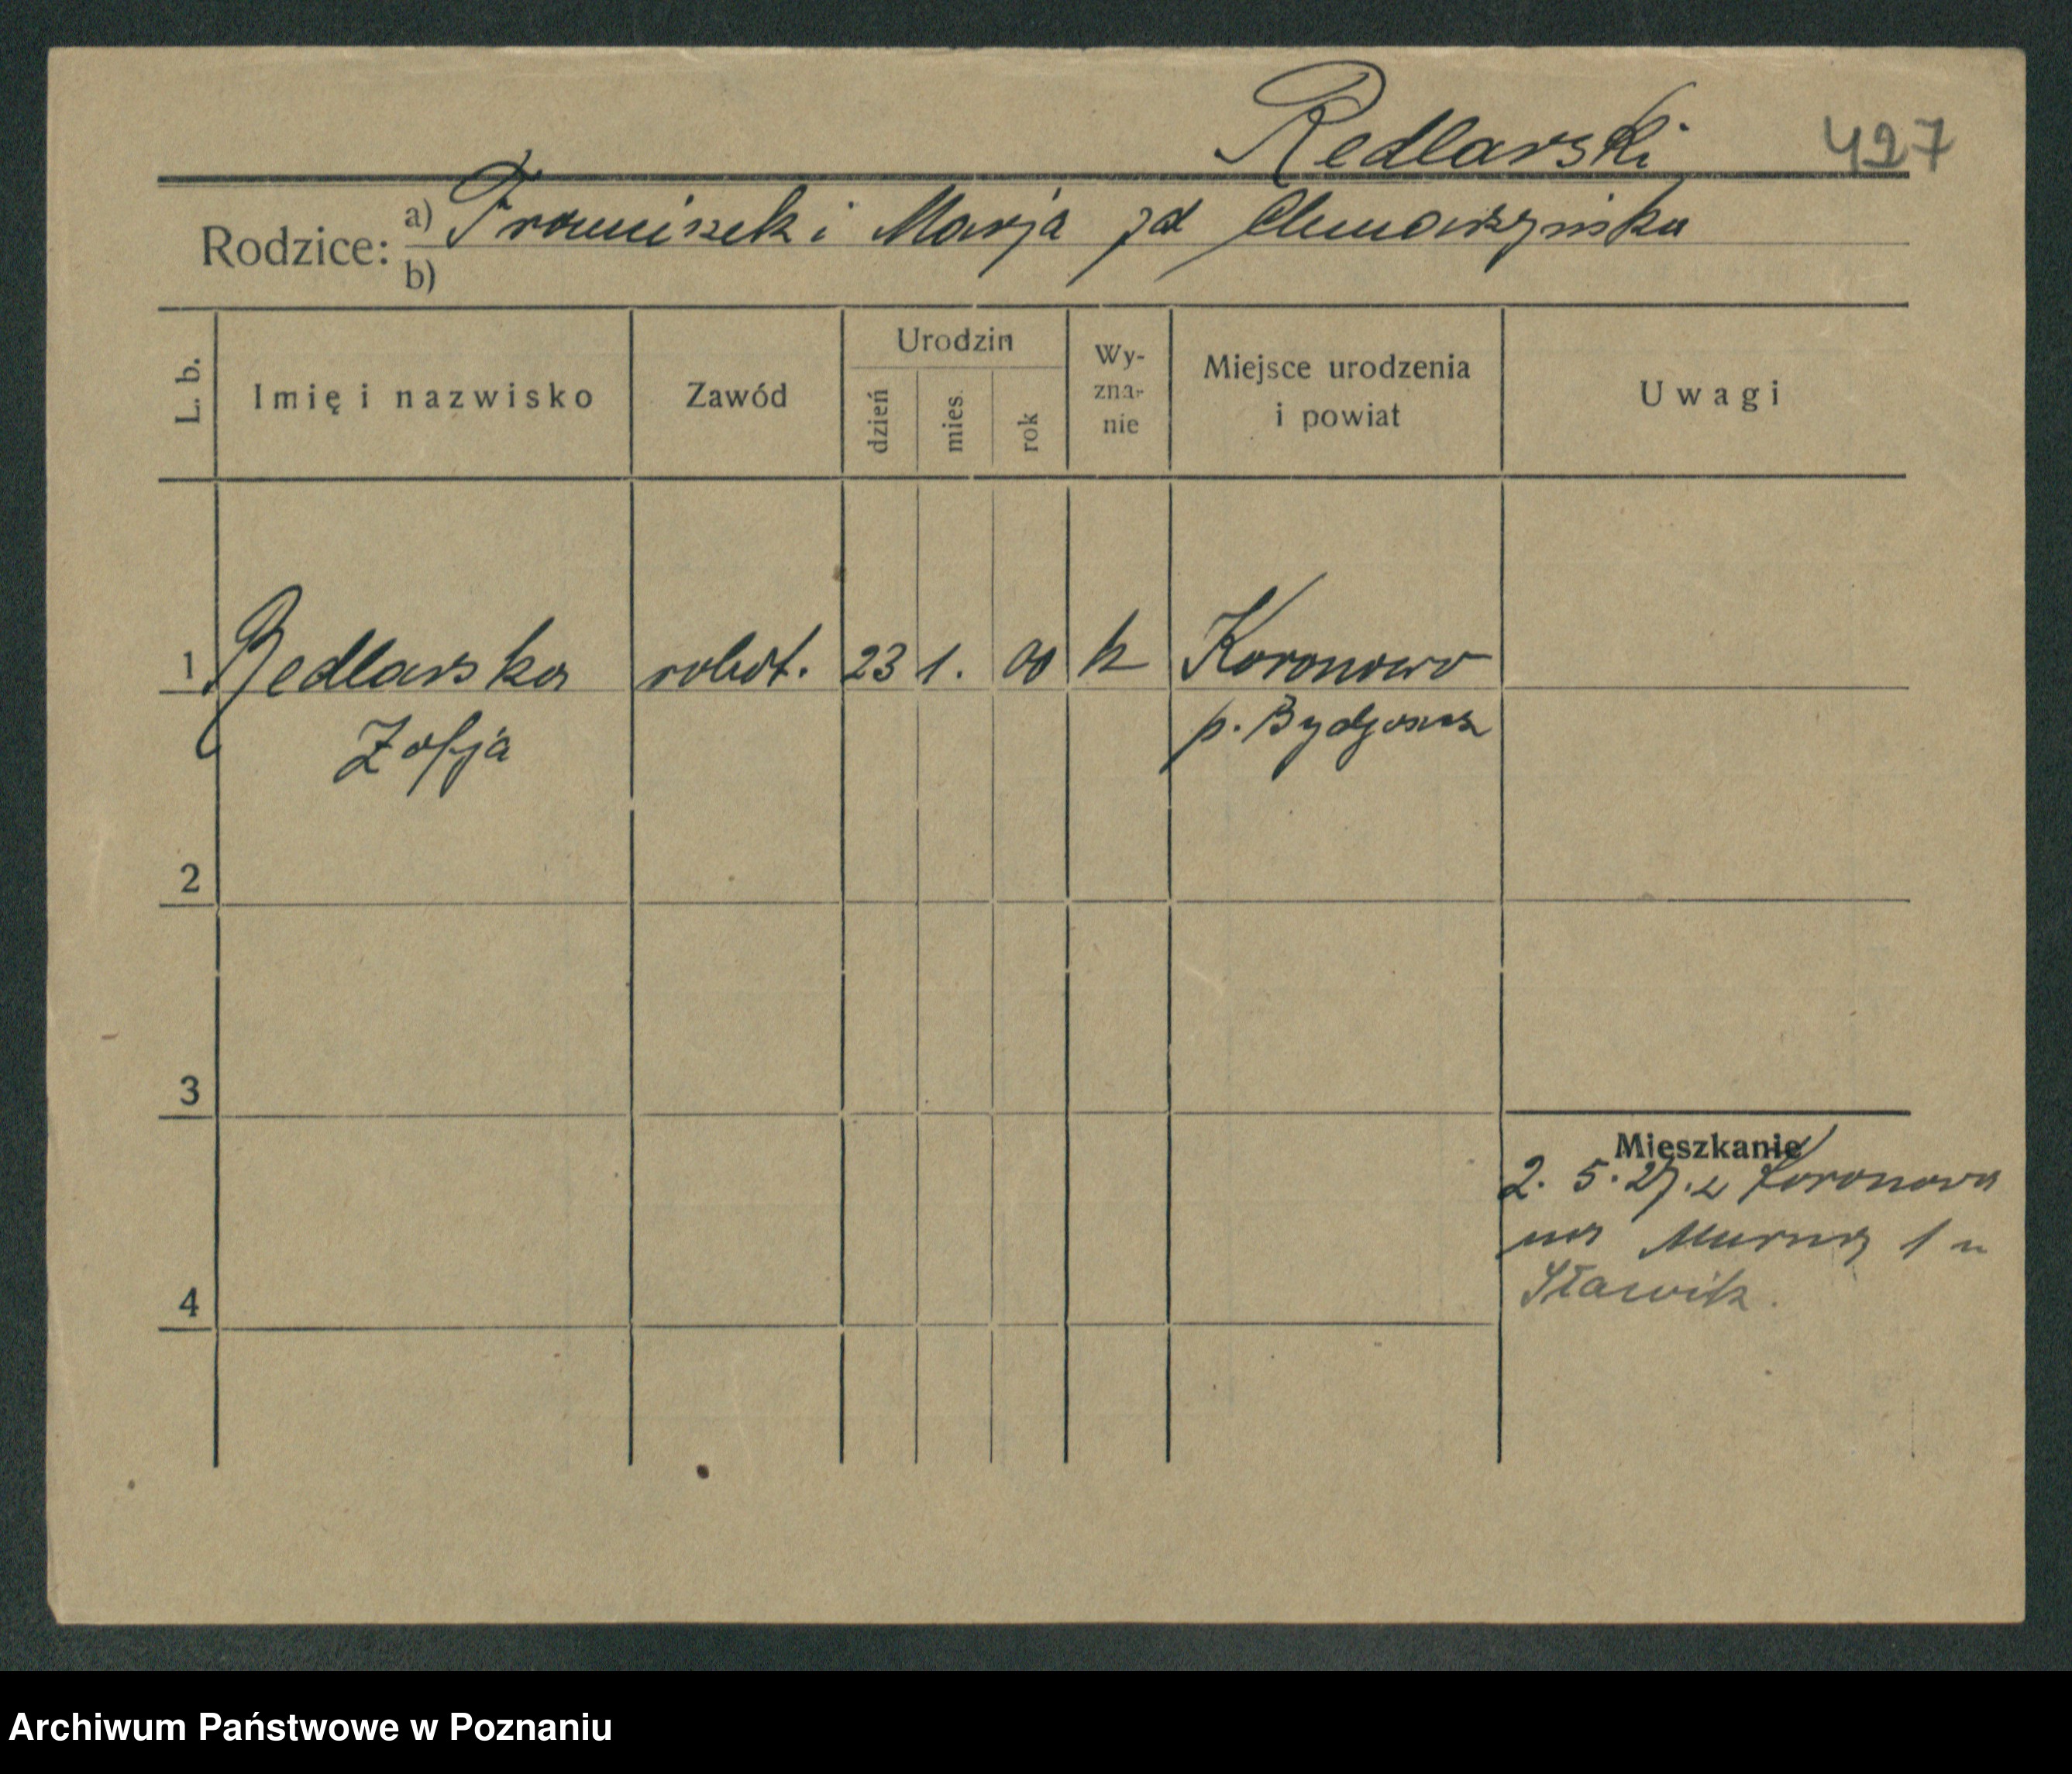 Redlarski 427
Rodzice: a) Franciszek i Marja zd
b)
L. b. Imię i nazwisko Zawód Urodzin dzień mies. rok Wy-zna-nie Miejsce urodzenia i powiat Uwagi
1 Redlarska robot. 23 1. 00 k Koronowo
Zofja p. Bydgoszcz
2
3
Mieszkanie
2. 5. 27. z Koronowa
na Murną 1 u
4 Sławik.
Archiwum Państwowe w Poznaniu